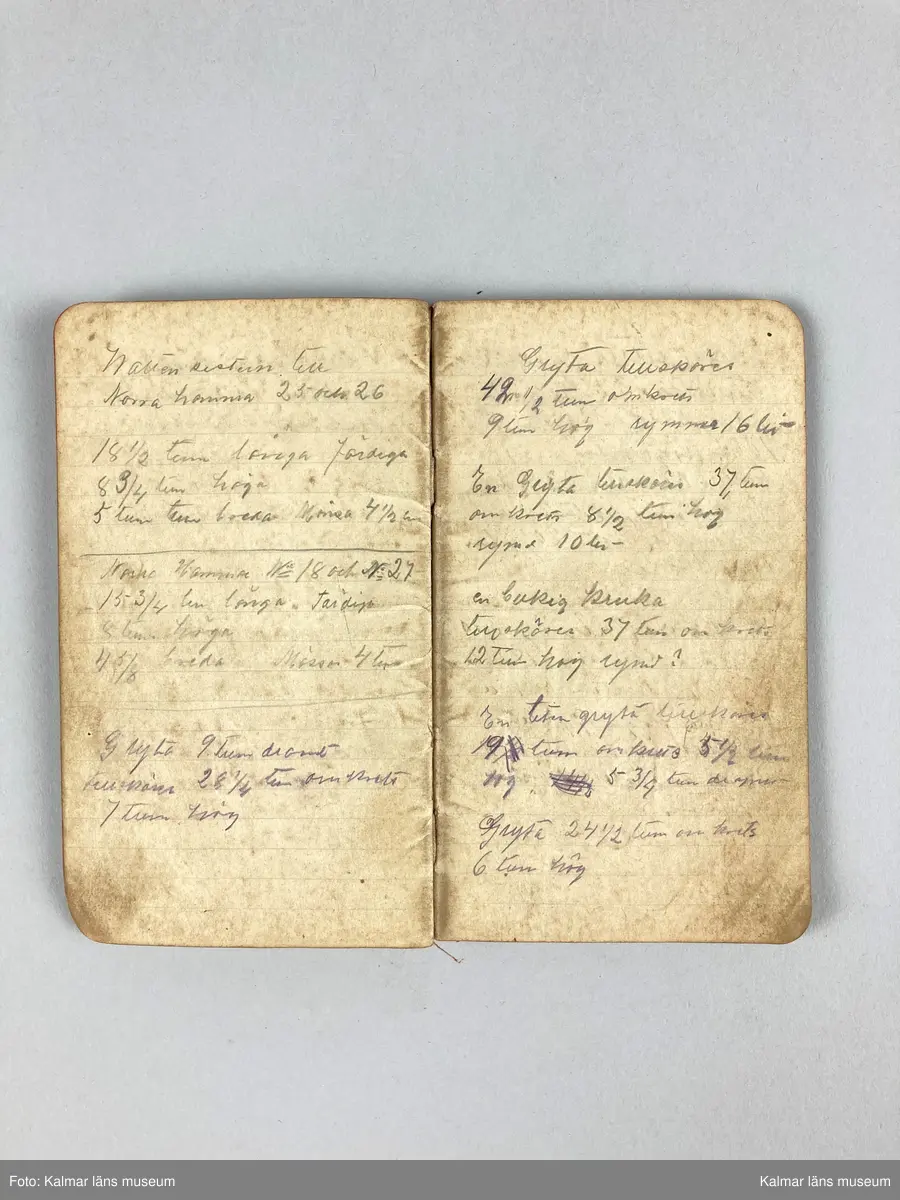 Watten sistern till
Norra hamma 25 och 26
18 1/2 tum långa färdiga
8 3/4 tum höga
5 tum tum breda Mössa 4 1/2
Norra Hammar No 18 och No 27
15 3/4 tum långa färdiga
8 tum höga
4 5/8 breda Mössa 4 tum
Gryta 9 tum diamt
tillskäres 28 1/4 tum omkrets
7 tum hög
Gryta tillskäres
42 1/2 tum omkrets
9 tum hög rymmer 16 lit
En Gryta tillskäres 37 tum
omkrets 8 1/2 tum hög
rymd 10 lit
en bukig kruka
tillskäres 37 tum omkrets
12 tum hög rymd?
En liten gryta tillskäres
19 tum omkrets 5 1/2 tum
hög 5 3/4 tum
Gryta 24 1/2 tum omkrets
6 tum hög
Foto: Kalmar läns museum
Kalmar läns museum